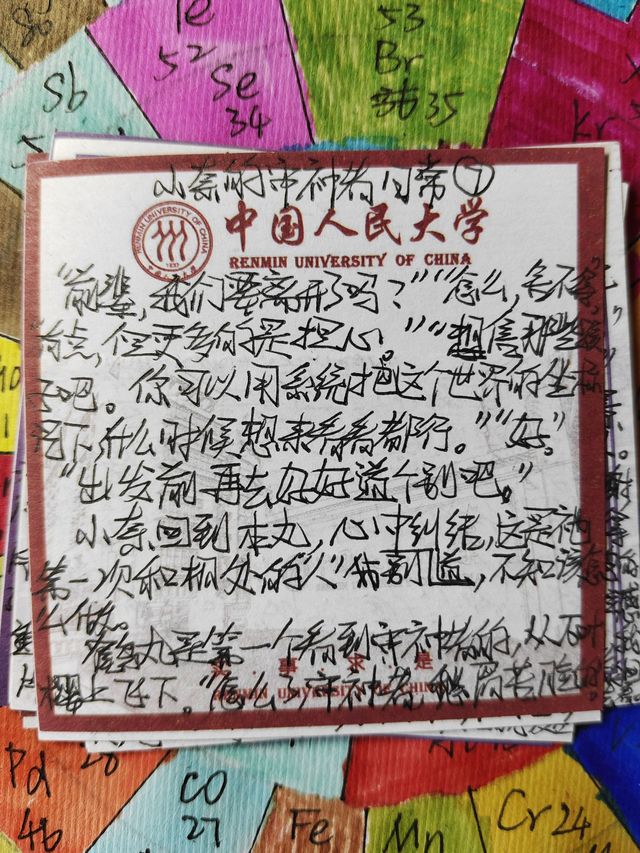 86
Te
52
53
Sb
Se
34
Br
35
Kr
小奈的审神者日常⑦
RENMIN UNIVERSITY OF CHINA
1937
中国人民大学
RENMIN UNIVERSITY OF CHINA
“前辈,我们要离开了吗?”“怎么,舍不得”
有点,但更多的是担心。”“相信那些
子吧。你可以用系统把这个世界的坐标
留下,什么时候想来看看都行。”“好。”
“出发前再去好好道个别吧。”
小奈回到本丸,心中纠结,这是她
第一次和相处的“人”告别,不知该怎
么做。
鹤丸是第一个看到审神者的,从
楼上飞下。“怎么了审神者,愁眉苦脸的
实事求是
RENMIN UNIVERSITY OF CHINA
10
Pd
46
28
CO
27
Fe
Mn
Cr 24